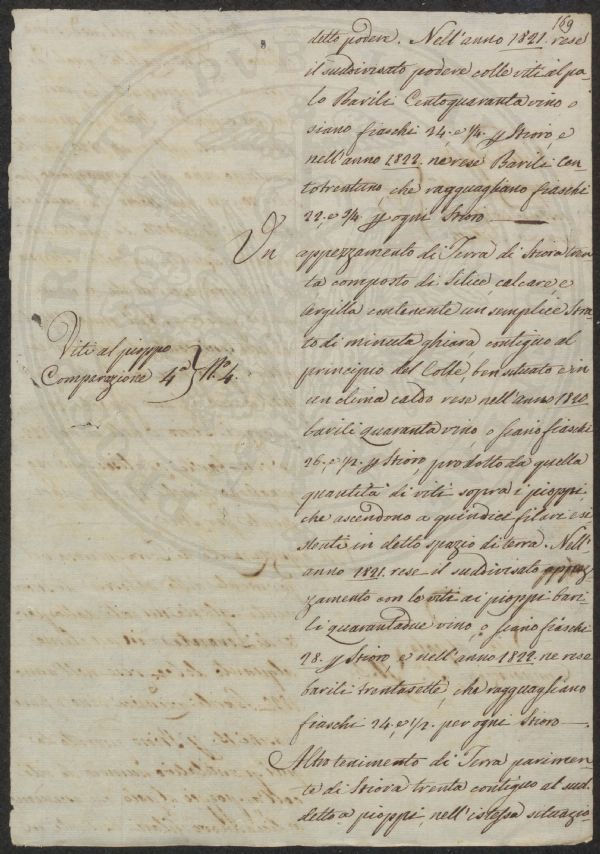 169
detto podere. Nell'anno 1821. rese
il suddivisato podere colle viti al pa-
lo Barili Centoquaranta vino o
siano fiaschi 24. e 1/4. p Stioro, e
nell'anno 1822. ne rese Barili Cen-
totrentuno, che ragguagliano fiaschi
22, e 3/4 p ogni Stioro
Un
appezzamento di Terra di Stiora tren-
ta composto di Silice, calcare, e
argilla contenente un semplice Stra-
to di minuta ghiara, contiguo al
principio del Colle, ben situato e in
un clima caldo rese nell'anno 1820
barili quaranta vino o siano fiaschi
26, e 1/2. p Stioro, prodotto da quella
quantità di viti sopra i pioppi,
che ascendono a quindici filari esi-
stenti in detto spazio di terra. Nell'
anno 1821. rese il suddivisato appez-
zamento con le viti ai pioppi bari-
li quarantadue vino, o siano fiaschi
28. p Stioro e nell'anno 1822. ne rese
barili trentasette, che ragguagliano
fiaschi 24, e 1/2. per ogni Stioro
Altro tenimento di Terra parimen-
te di Stiora trenta contiguo al sud-
detto a pioppi, nell'istessa situazio-
Viti al pioppo
Comparazione 4a } No. 4.